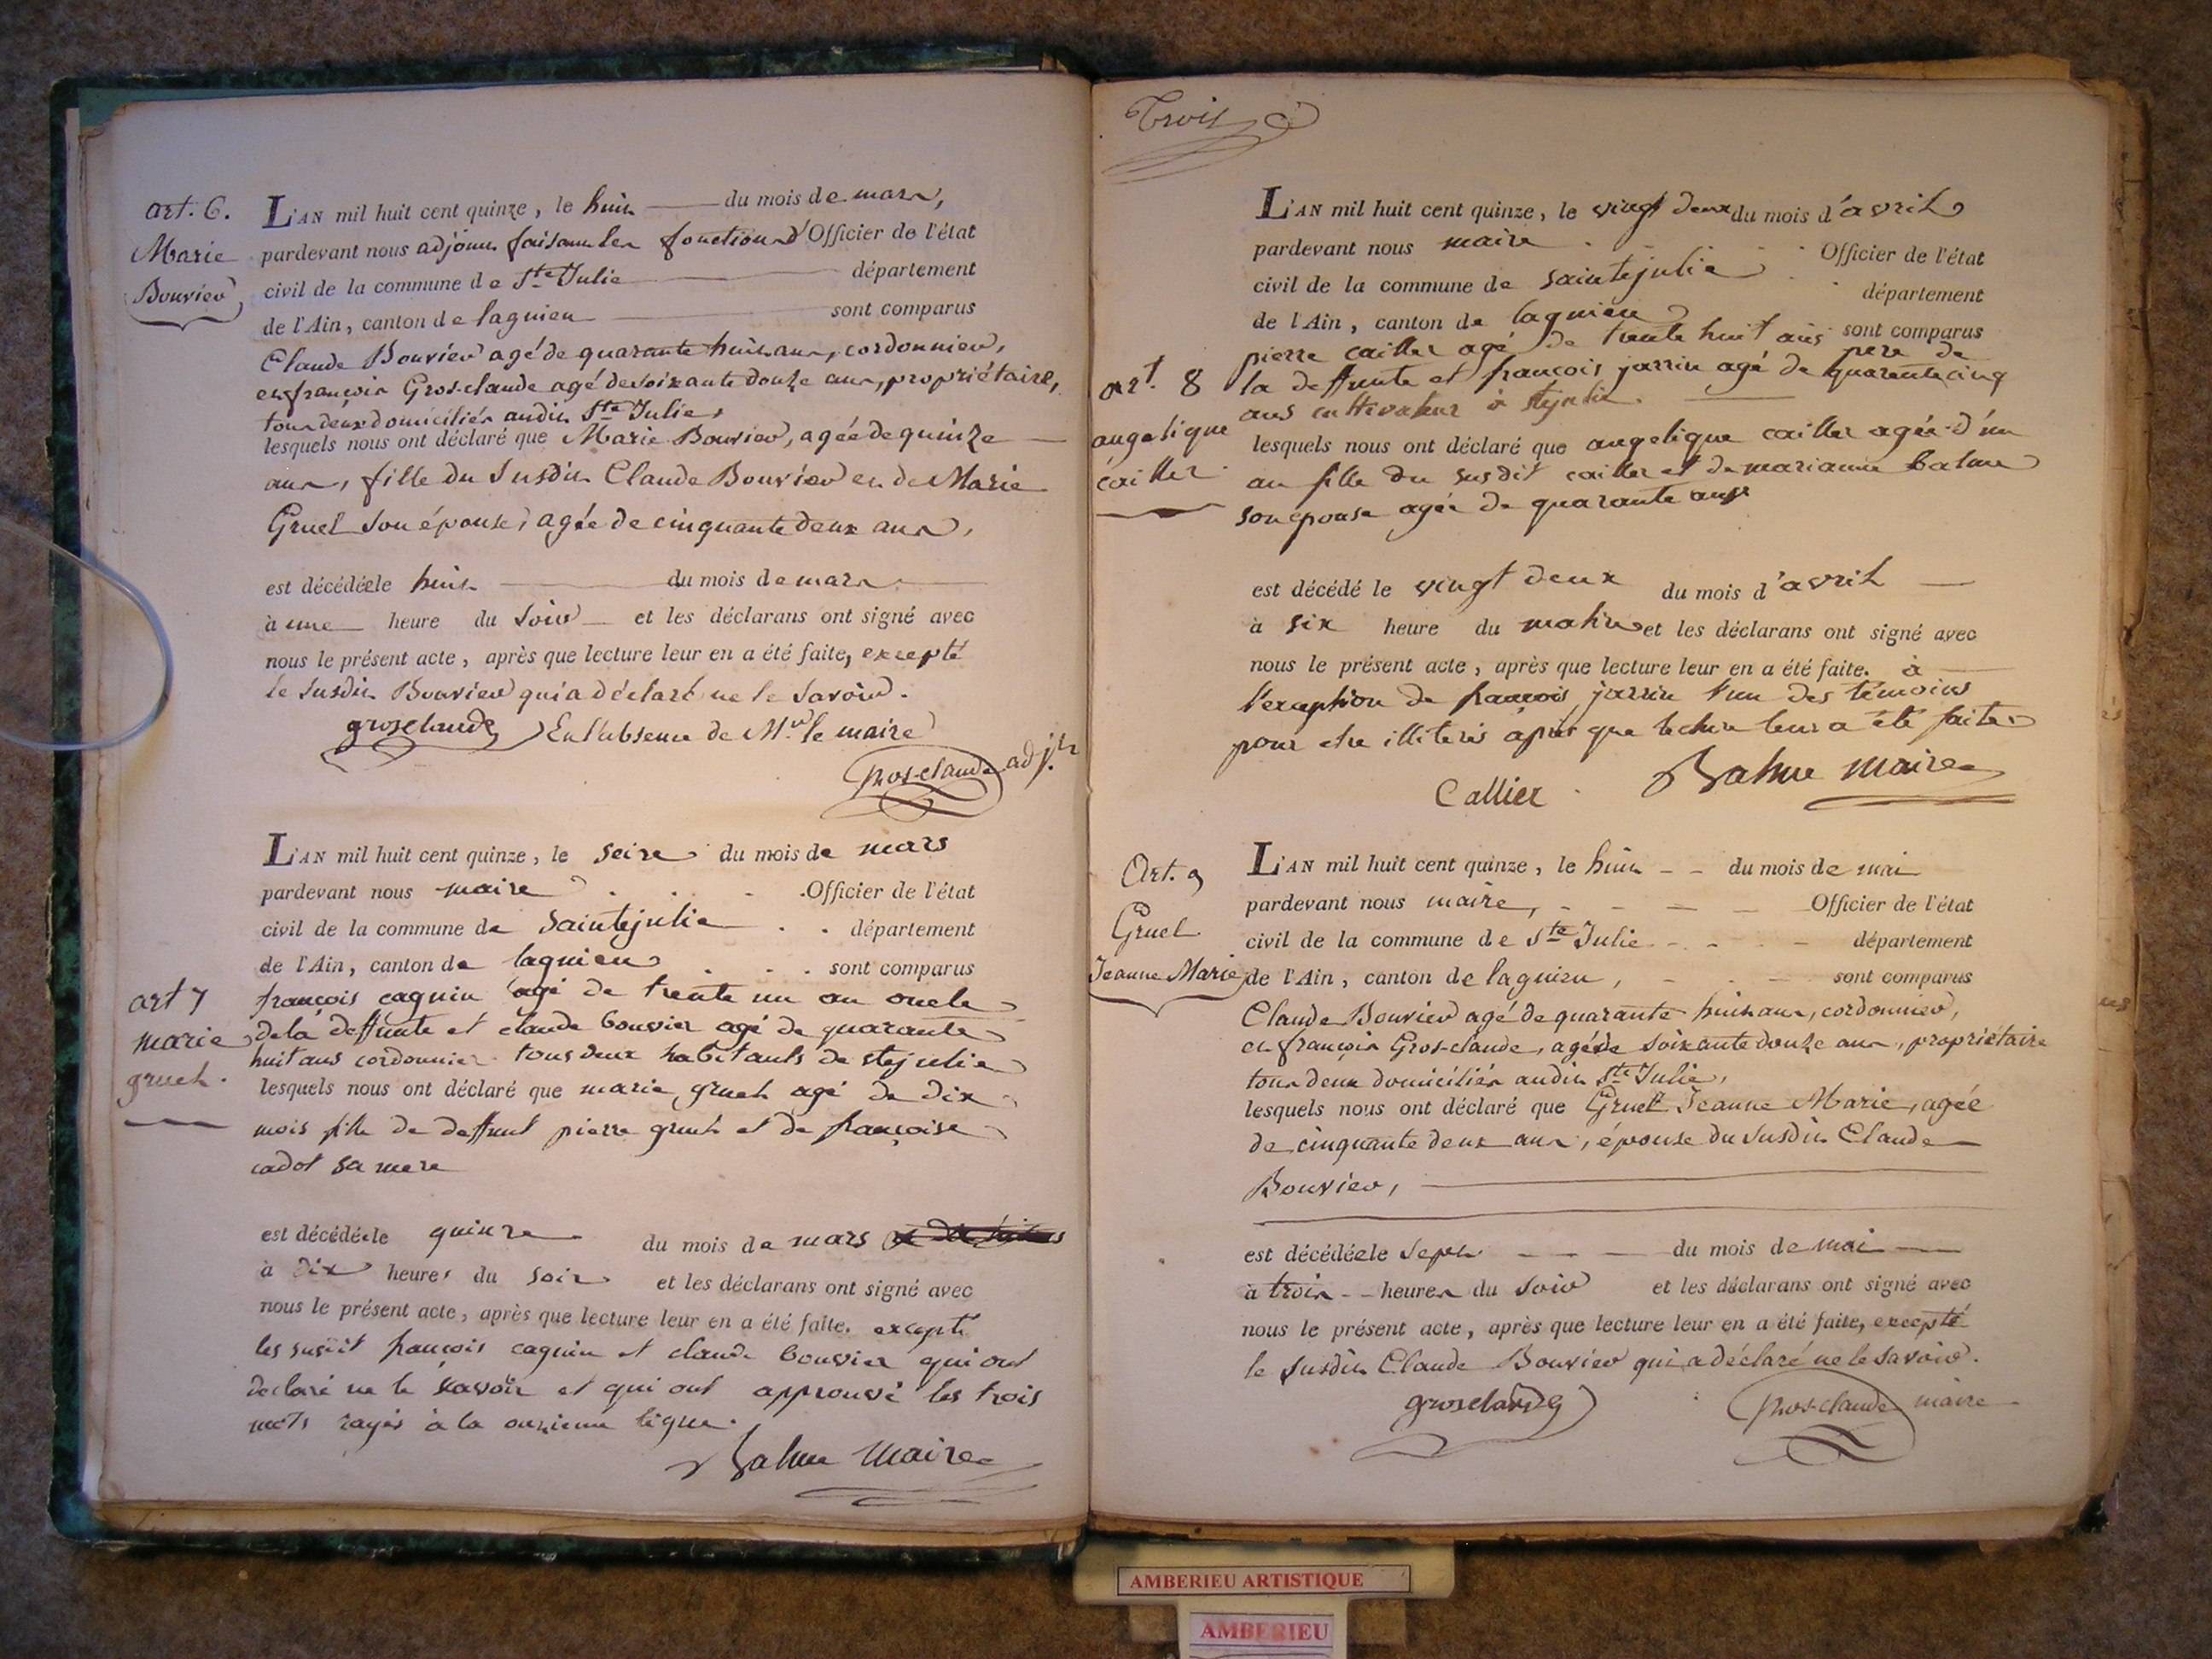 art. 6.
Marie
Bouvier
L'AN mil huit cent quinze, le huit du mois de mars,
pardevant nous adjoint faisant les fonctions d'Officier de l'état
civil de la commune de Ste Julie département
de l'Ain, canton de lagnieu sont comparus
Claude Bouvier agé de quarante huit ans, cordonnier,
et françois Gros-claude agé de soixante douze ans, propriétaire,
tous deux domiciliés audit Ste Julie,
lesquels nous ont déclaré que Marie Bouvier, agée de quinze
ans, fille du susdit Claude Bouvier et de Marie
Gruel son épouse, agée de cinquante deux ans,
est décédée le huit du mois de mars
à une heure du soir et les déclarans ont signé avec
nous le présent acte, après que lecture leur en a été faite, excepté
le susdit Bouvier qui a déclaré ne le savoir.
grosclaude En l'absence de Mr. le maire
Gros-claude adjt
L'AN mil huit cent quinze, le seize du mois de mars
pardevant nous maire Officier de l'état
civil de la commune de saintejulie département
de l'Ain, canton de lagnieu sont comparus
art 7
marie
gruel.
françois cagnin agé de trente un an oncle
de la deffunte et claude bouvier agé de quarante
huit ans cordonnier tous deux habitants de stejulie
lesquels nous ont déclaré que marie gruel agé de dix
mois fille de deffunt pierre gruel et de françoise
cadot sa mere
est décédée le quinze du mois de mars
à dix heures du soir et les déclarans ont signé avec
nous le présent acte, après que lecture leur en a été faite. excepte
les susdit françois cagnin et claude bouvier qui ont
declaré ne le savoir et qui ont approuvé les trois
mots rayés à la onzieme ligne.
Balme Maire
Trois
L'AN mil huit cent quinze, le vingt deux du mois d'avril
pardevant nous maire Officier de l'état
civil de la commune de saintejulie département
de l'Ain, canton de lagnieu sont comparus
art. 8
angelique
cailler
pierre cailler agé de trente huit ans pere de
la deffunte et francois jarrin agé de quarente cinq
ans cultivateur à stejulie.
lesquels nous ont déclaré que angelique cailler agée d'un
an fille du susdit cailler et de marianne balme
son épouse agée de quarante ans
est décédé le vingt deux du mois d'avril
à six heure du matin et les déclarans ont signé avec
nous le présent acte, après que lecture leur en a été faite. à
l'exception de françois jarrin l'un des témoins
pour etre illiteré après que lecture leur a été faite
Callier Balme maire
Art. 9
Gruel
Jeanne Marie
L'AN mil huit cent quinze, le huit du mois de mai
pardevant nous maire, Officier de l'état
civil de la commune de Ste Julie département
de l'Ain, canton de lagnieu, sont comparus
Claude Bouvier agé de quarante huit ans, cordonnier,
et françois Gros-claude, agé de soixante douze ans, propriétaire
tous deux domiciliés audit Ste Julie,
lesquels nous ont déclaré que Gruel Jeanne Marie, agée
de cinquante deux ans, épouse du susdit Claude
Bouvier,
est décédée le sept du mois de mai
à trois heures du soir et les déclarans ont signé avec
nous le présent acte, après que lecture leur en a été faite, excepté
le susdit Claude Bouvier qui a déclaré ne le savoir.
grosclaude Gros-claude maire
AMBERIEU ARTISTIQUE
AMBERIEU